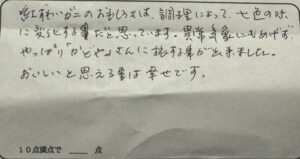 紅ずわいガニのおもしろさは、調理によって、七色の味
に変化する事だと思っています。異常気象にもめげず、
やっぱり「かどや」さんに話する事が出来ました。
おいしいと思える事は幸せです。
10点満点で ____ 点